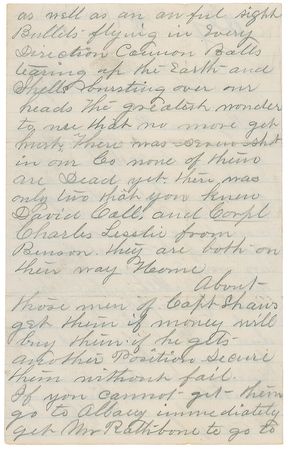 as well as an awful sight
Bullets flying in Every
Direction Cannon Balls
tearing up the Earth and
Shells bursting over our
heads the greatest wonder
to use that no more get
there was seven shot
in our Co none of them
are Dead yet. there was
only two that you knew
David Call and Corpl
Charles Lesslie from
Benson. they are both on
their way Home
About
those men of Capt Shaws
get them if money will
buy them if he gets
another Position secure
them without fail.
If you cannot get them
go to Albany immediately
get Mr Rathbone to go to